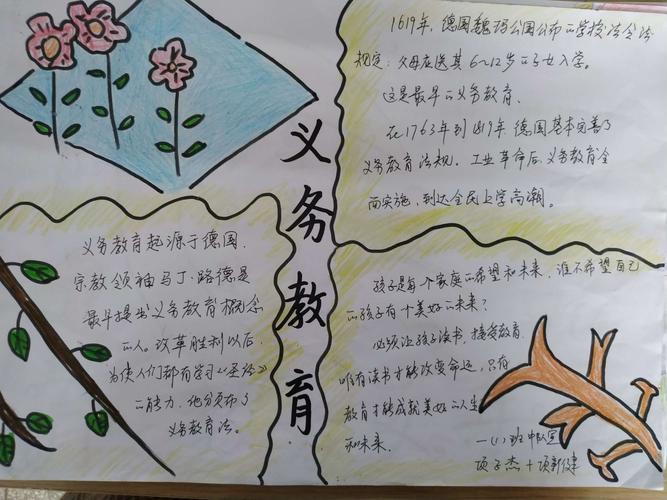 义务教育
1619年,德国魏玛公国公布的学校法令法
规定:父母应送其6~12岁的子女入学。
这是最早的义务教育.
在1763年到1819年德国基本完善了
义务教育法规.工业革命后,义务教育全
面实施,到达全民上学高潮。
义务教育起源于德国.
宗教领袖马丁·路德是
最早提出义务教育概念
的人。改革胜利以后,
为使人们都有学习《圣经》
的能力,他颁布了
义务教育法。
孩子是每个家庭的希望和未来,谁不希望自己
的孩子有个美好的未来?
必须让孩子读书,接受教育.
唯有读书才能改变命运,只有
教育才能成就美好的人生
和未来.
一(1)班中队
项子杰+项新健